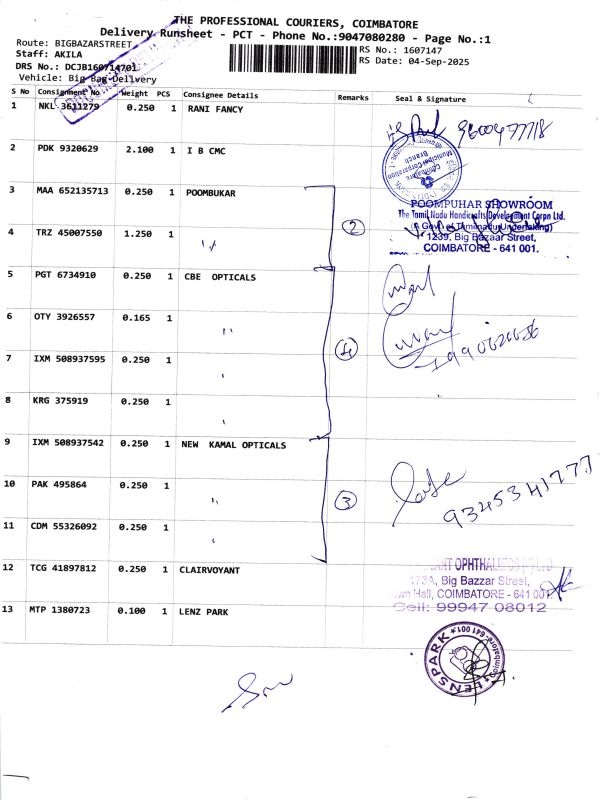 THE PROFESSIONAL COURIERS, COIMBATORE
Delivery Runsheet - PCT - Phone No.:9047080280 - Page No.:1
Route: BIGBAZARSTREET
Staff: AKILA
DRS No.: DCJB160714701
Vehicle: Big Bag Delivery
RS No.: 1607147
RS Date: 04-Sep-2025
S No Consignment No Weight PCS Consignee Details Remarks Seal & Signature
1 NKL 3611279 0.250 1 RANI FANCY 9600477718
2 PDK 9320629 2.100 1 I B CMC
Coimbatore
Municipal Corporation
Branch
3 MAA 652135713 0.250 1 POOMBUKAR
POOMPUHAR SHOWROOM
The Tamil Nadu Handicrafts Development Corpn Ltd.
(A Govt. of Tamilnadu Undertaking)
1239, Big Bazaar Street,
COIMBATORE - 641 001.
4 TRZ 45007550 1.250 1 "
2
5 PGT 6734910 0.250 1 CBE OPTICALS
6 OTY 3926557 0.165 1 "
4
7 IXM 508937595 0.250 1 "
8 KRG 375919 0.250 1 "
9 IXM 508937542 0.250 1 NEW KAMAL OPTICALS
10 PAK 495864 0.250 1 "
3
9345341777
11 CDM 55326092 0.250 1 "
12 TCG 41897812 0.250 1 CLAIRVOYANT
173A, Big Bazzar Street,
COIMBATORE - 641 001.
Cell: 99947 08012
13 MTP 1380723 0.100 1 LENZ PARK
LENSPARK
Coimbatore-641 001